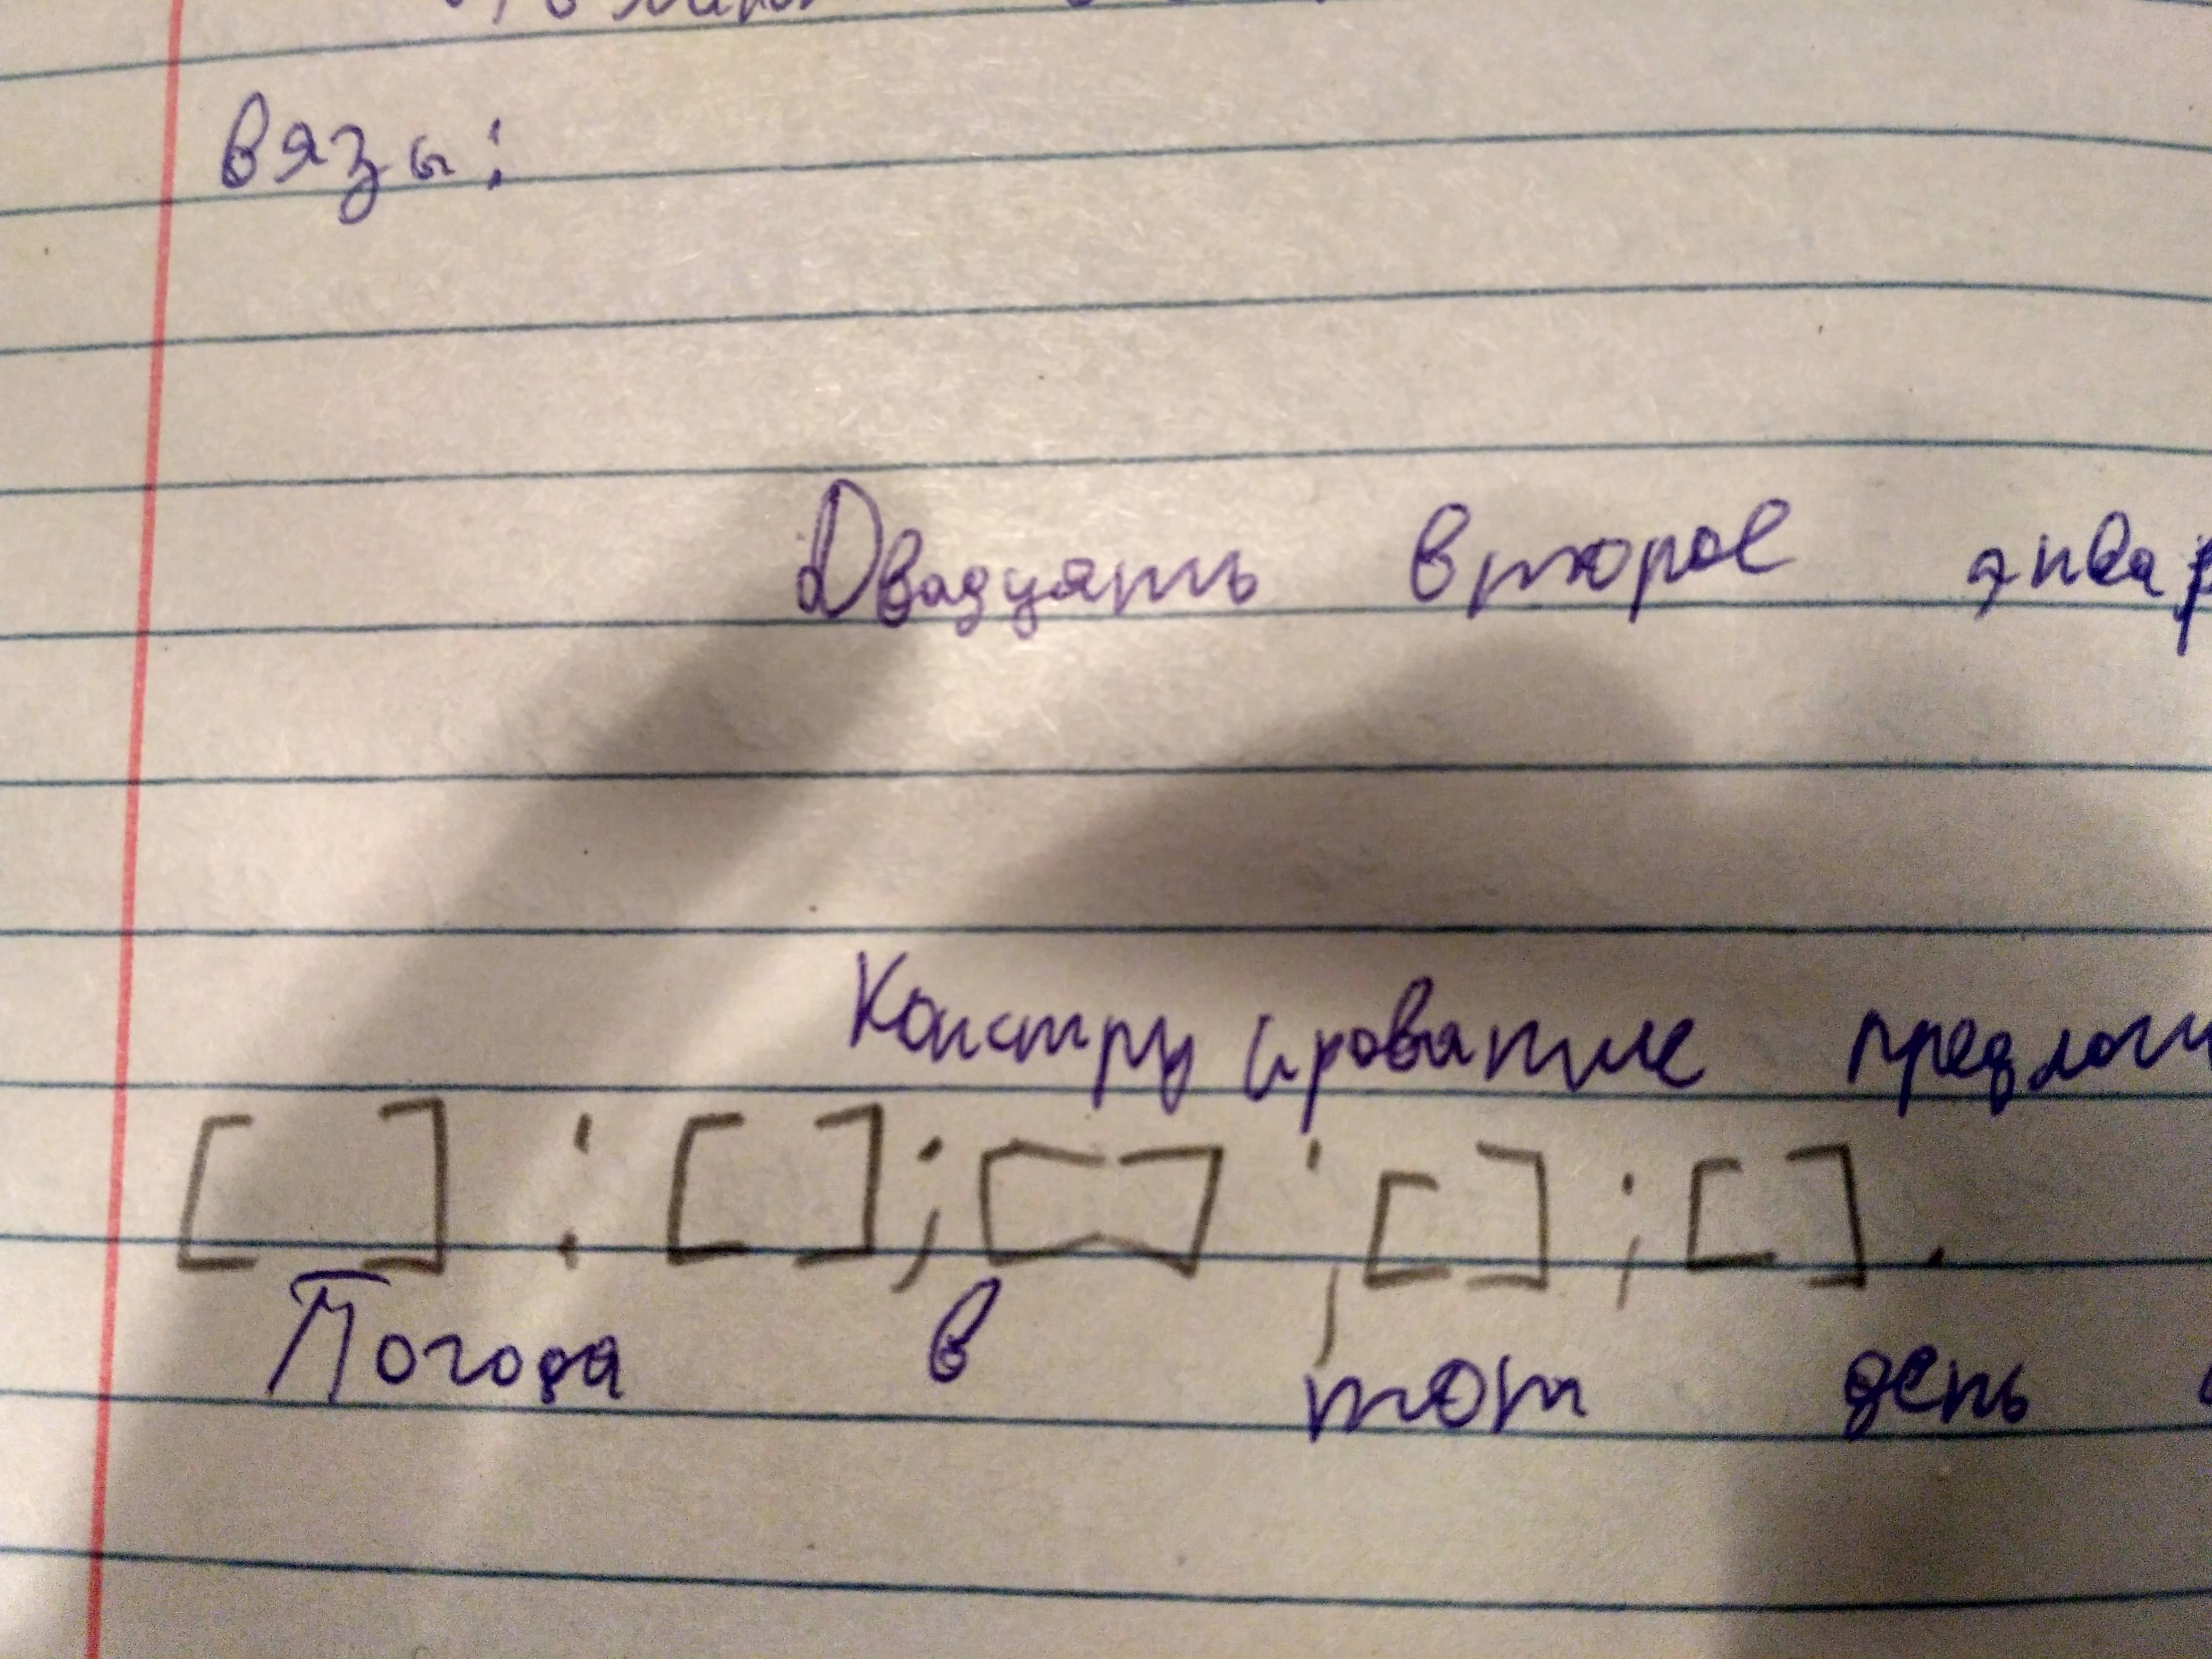 вязы:
Двадцать второе
Конструирование
[ ] : [ ] ; [ ] ; [ ] ; [ ] .
Погода в тот день